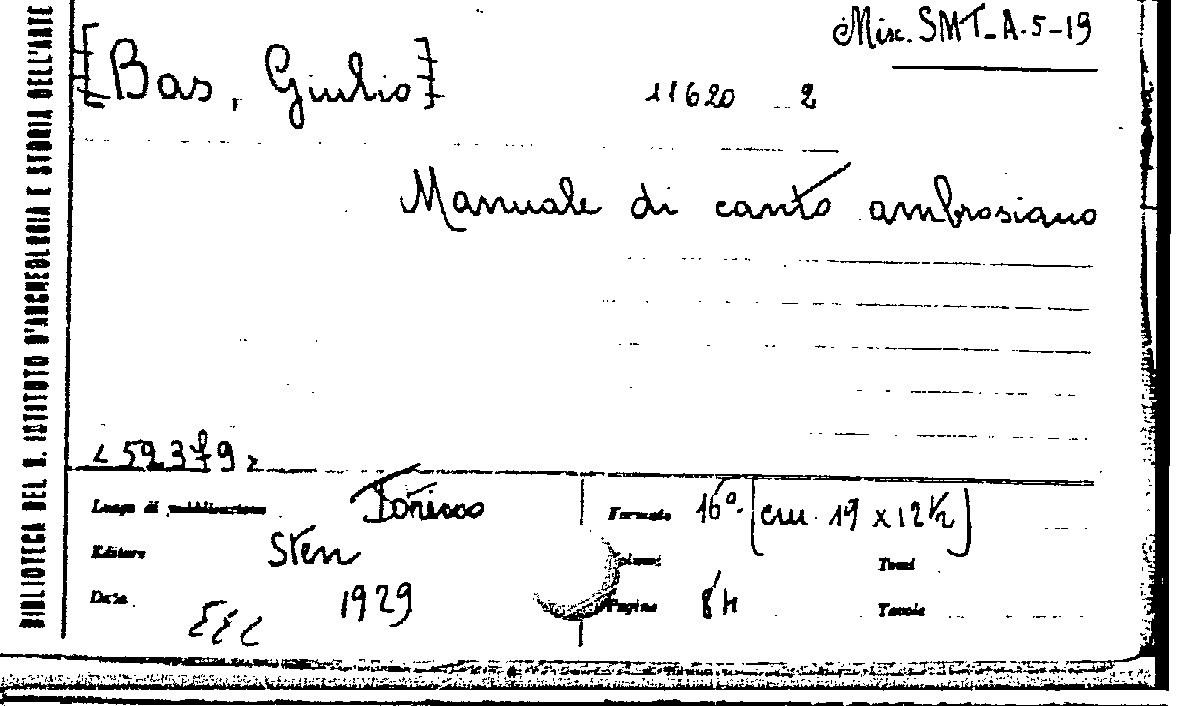 BIBLIOTECA DEL R. ISTITUTO D'ARCHEOLOGIA E STORIA DELL'ARTE
Misc. SMT-A-5-19
[Bas, Giulio]
11620 2
Manuale di canto ambrosiano
<59379>
Luogo di pubblicazione Torino
Formato 16° [cm. 19 x 12½]
Editore Sten
Volumi
Tomi
Data 1929
Pagine 84
Tavole